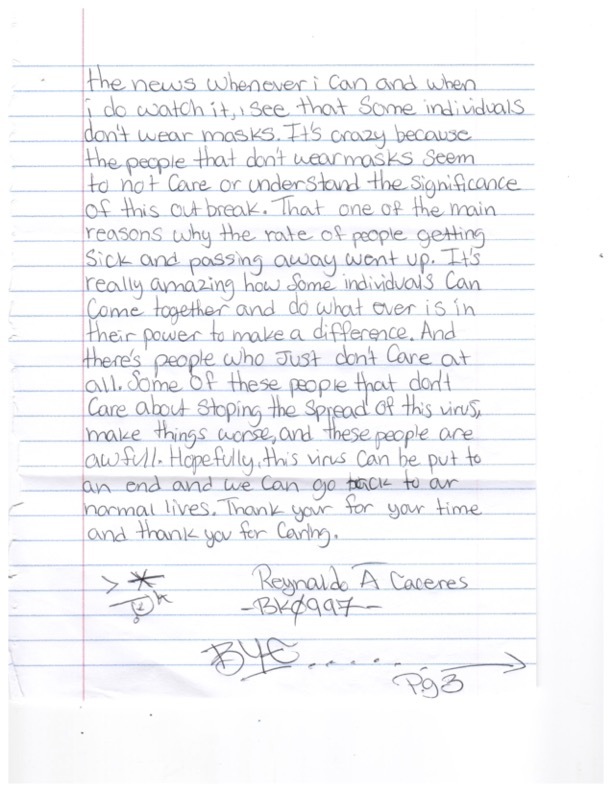 the news whenever i can and when
i do watch it, i see that some individuals
don't wear masks. It's crazy because
the people that don't wear masks seem
to not care or understand the significance
of this out break. That one of the main
reasons why the rate of people getting
sick and passing away went up. It's
really amazing how some individuals can
come together and do what ever is in
their power to make a difference. And
there's people who Just don't care at
all. Some of these people that don't
care about stoping the spread of this virus,
make things worse, and these people are
awfull. Hopefully, this virus can be put to
an end and we can go back to our
normal lives. Thank your for your time
and thank you for caring.
Reynaldo A Caceres
-BKØ997-
BYE......
Pg3